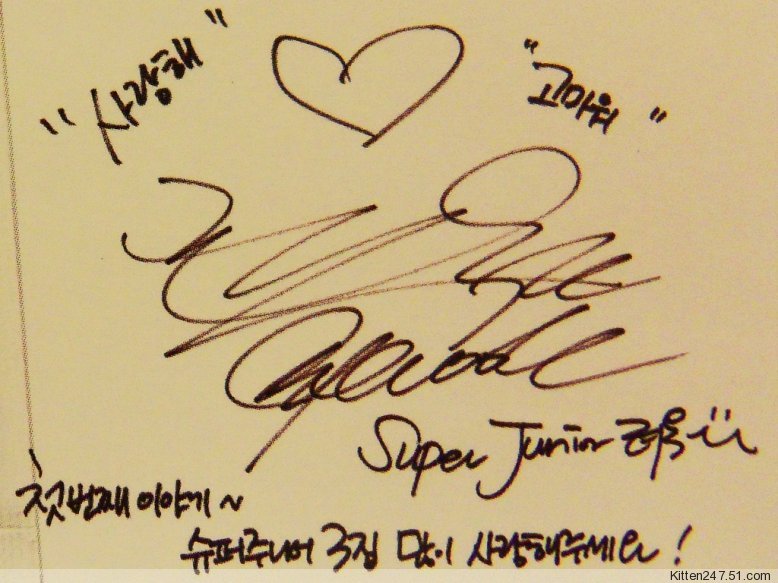 "사랑해"
"고마워"
Super Junior 려욱
첫번째 이야기~
슈퍼주니어 3집 많이 사랑해주세요!
Kitten247.51.com